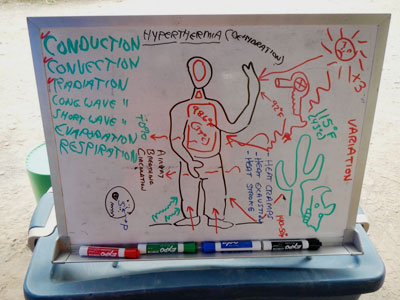 HYPERTHERMIA (DEHYDRATION)
CONDUCTION
CONVECTION
RADIATION
LONG WAVE "
SHORT WAVE "
EVAPORATION
RESPIRATION
70%
AIRWAY
BREATHING
CIRCULATION
98.6°F
(37°C)
92°F
x3
115°F
VARIATION
- HEAT CRAMPS
- HEAT EXHAUSTION
- HEAT STROKE
EXPO
EXPO
EXPO
EXPO